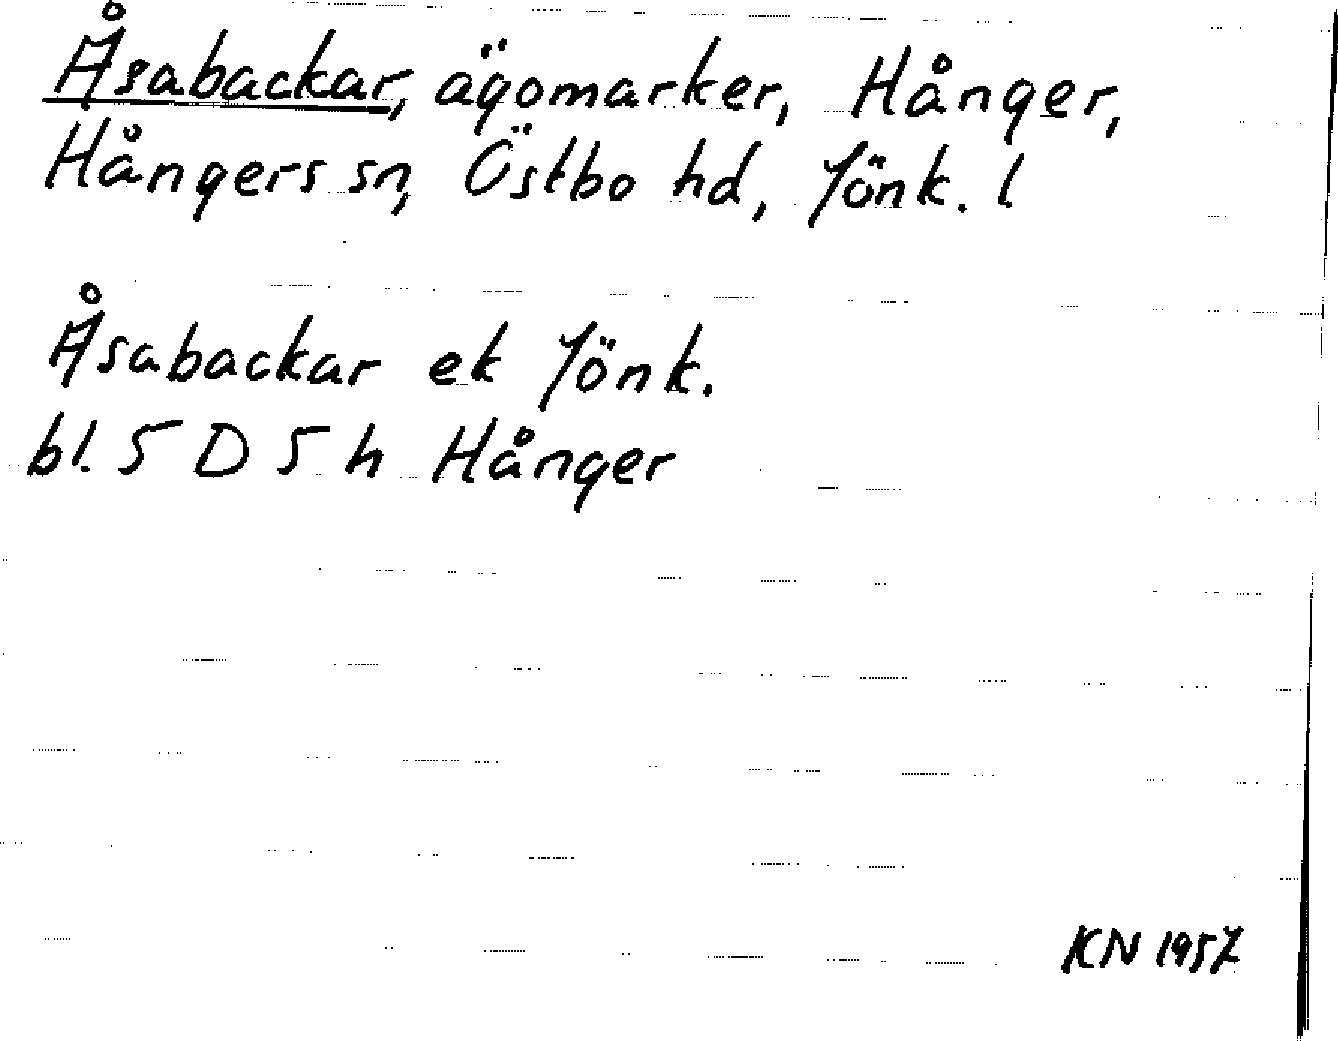 Åsabackar, ägomarker, Hånger,
Hångers sn, Östbo hd, Jönk. l
Åsabackar ek Jönk.
bl. 5 D 5 h Hånger
KN 1957